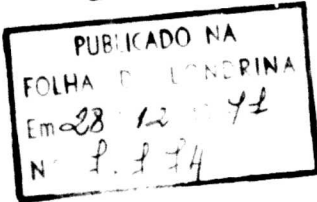 PUBLICADO NA
FOLHA DE LONDRINA
Em 28 12 71
Nº